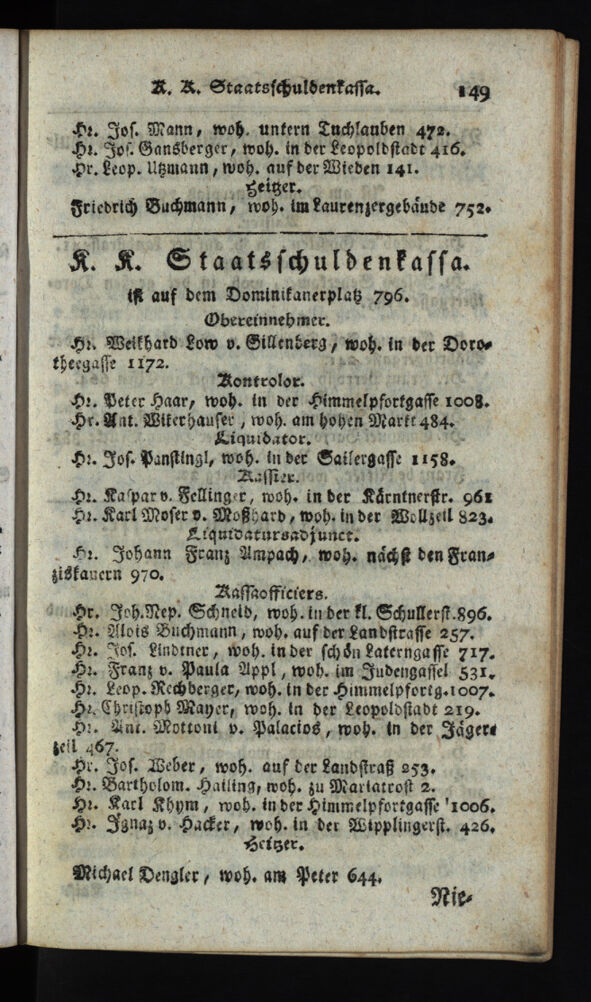 K. K. Staatsschuldenkassa. 149
Hr. Jos. Mann, woh. untern Tuchlauben 472.
Hr. Jos. Gansberger, woh. in der Leopoldstadt 416.
Hr. Leop. Utzmann, woh. auf der Wieden 141.
Heitzer.
Friedrich Buchmann, woh. im Laurenzergebäude 752.
K. K. Staatsschuldenkassa.
ist auf dem Dominikanerplatz 796.
Obereinnehmer.
Hr. Weikhard Low v. Gillenberg, woh. in der Doro-
theegasse 1172.
Kontrolor.
Hr. Peter Haar, woh. in der Himmelpfortgasse 1008.
Hr. Ant. Wikerhauser, woh. am hohen Markt 484.
Liquidator.
Hr. Jos. Panstingl, woh. in der Sailergasse 1158.
Kassier.
Hr. Kaspar v. Fellinger, woh. in der Kärntnerstr. 961
Hr. Karl Moser v. Moßhard, woh. in der Wollzeil 823.
Liquidatursadjunct.
Hr. Johann Franz Ampach, woh. nächst den Fran-
ziskanern 970.
Kassaofficiers.
Hr. Joh. Nep. Schneid, woh. in der kl. Schullerst. 896.
Hr. Alois Buchmann, woh. auf der Landstrasse 257.
Hr. Jos. Lindtner, woh. in der schön Laterngasse 717.
Hr. Franz v. Paula Appl, woh. im Judengassel 531.
Hr. Leop. Rechberger, woh. in der Himmelpfortg. 1007.
Hr. Christoph Mayer, woh. in der Leopoldstadt 219.
Hr. Ant. Mottoni v. Palacios, woh. in der Jäger-
zeil 467.
Hr. Jos. Weber, woh. auf der Landstraß 253.
Hr. Bartholom. Hailing, woh. zu Mariatrost 2.
Hr. Karl Khym, woh. in der Himmelpfortgasse 1006.
Hr. Ignaz v. Hacker, woh. in der Wipplingerst. 426.
Heitzer.
Michael Dengler, woh. am Peter 644.
Nie-